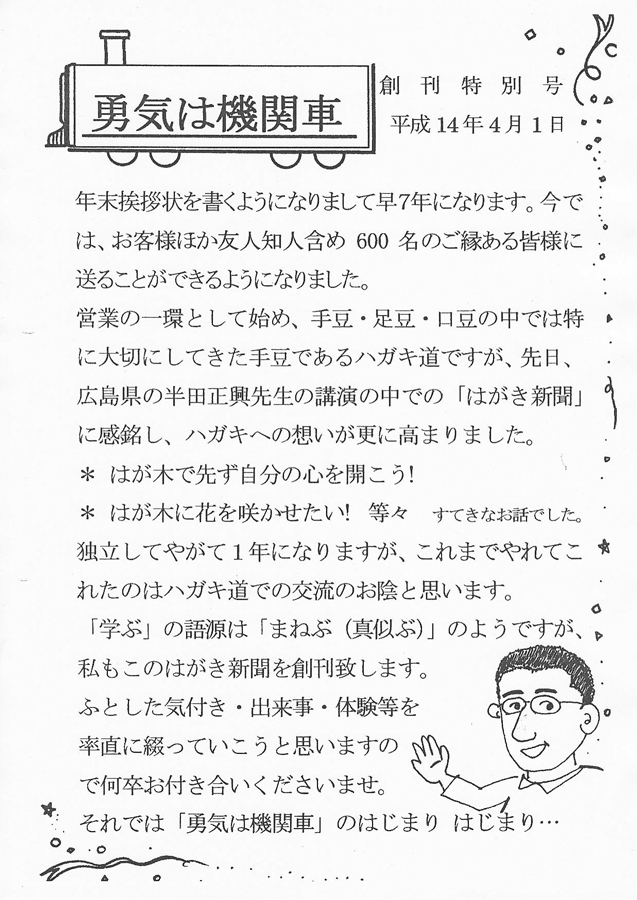 勇気は機関車
創刊特別号
平成14年4月1日
年末挨拶状を書くようになりまして早7年になります。今で
は、お客様ほか友人知人含め 600 名のご縁ある皆様に
送ることができるようになりました。
営業の一環として始め、手豆・足豆・口豆の中では特
に大切にしてきた手豆であるハガキ道ですが、先日、
広島県の半田正興先生の講演の中での「はがき新聞」
に感銘し、ハガキへの想いが更に高まりました。
＊ はが木で先ず自分の心を開こう!
＊ はが木に花を咲かせたい! 等々 すてきなお話でした。
独立してやがて１年になりますが、これまでやれてこ
れたのはハガキ道での交流のお陰と思います。
「学ぶ」の語源は「まねぶ（真似ぶ）」のようですが、
私もこのはがき新聞を創刊致します。
ふとした気付き・出来事・体験等を
率直に綴っていこうと思いますの
で何卒お付き合いくださいませ。
それでは「勇気は機関車」のはじまり はじまり…